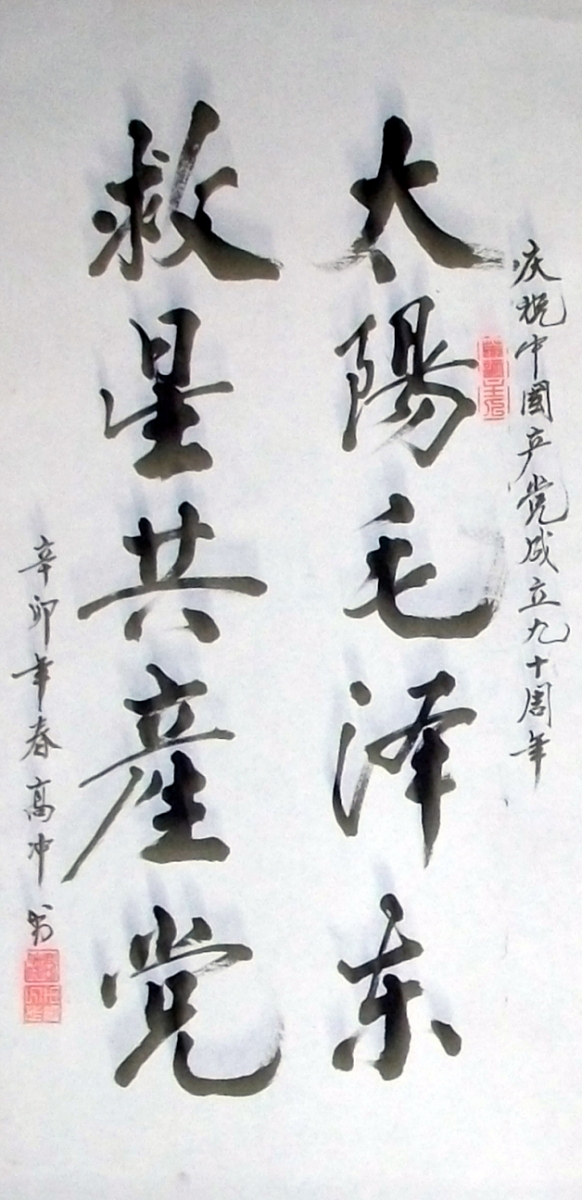 庆祝中國产党成立九十周年
太陽毛泽东
救星共産党
辛卯年春高冲书